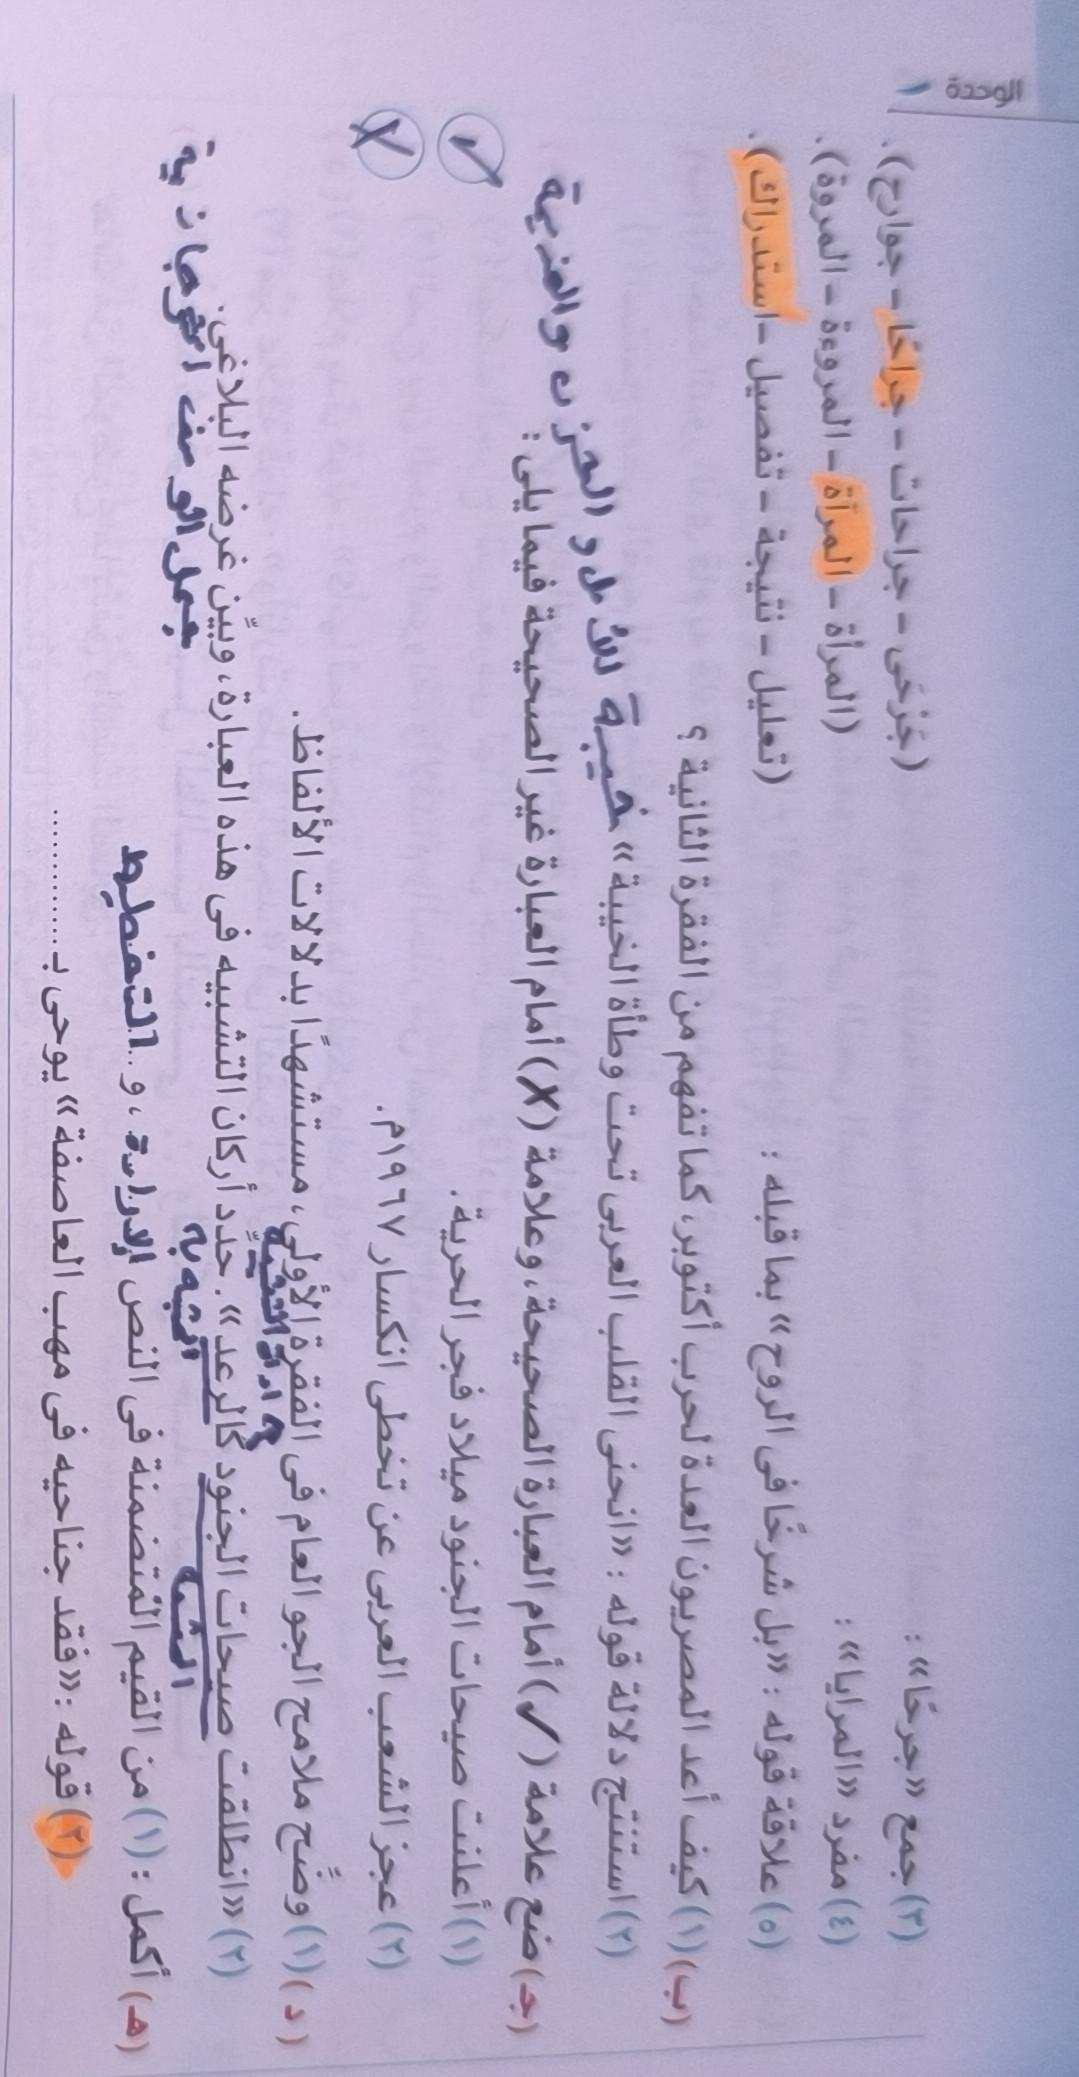 الوحدة ١
(٣) جمع «جرحًا» : (جَرْحَى - جراحات - جراحًا - جوارح).
(٤) مفرد «المرايا» : (المرأة - المرآة - المروءة - المروة).
(٥) علاقة قوله : «بل شرخًا فى الروح» بما قبله : (تعليل - نتيجة - تفصيل - استدراك).
(ب) (١) كيف أعد المصريون العدة لحرب أكتوبر، كما تفهم من الفقرة الثانية ؟
(٢) استنتج دلالة قوله : «انحنى القلب العربى تحت وطأة الخيبة» خيبة للأمل و الحزن والهزيمة
(جـ) ضع علامة (✓) أمام العبارة الصحيحة، وعلامة (X) أمام العبارة غير الصحيحة فيما يلى :
(١) أعلنت صيحات الجنود ميلاد فجر الحرية. ✓
(٢) عجز الشعب العربى عن تخطى انكسار ١٩٦٧م. X
(د) (١) وضِّح ملامح الجو العام فى الفقرة الأولى، مستشهدًا بدلالات الألفاظ.
أداة التشبيه
(٢) «انطلقت صيحات الجنود كالرعد». حدد أركان التشبيه فى هذه العبارة، وبيِّن غرضه البلاغى.
المشبه به
جمل الوصف
(هـ) أكمل : (١) من القيم المُتضمنة فى النص الإرادة ، و التخطيط
(٢) قوله : «فقد جناحيه فى مهب العاصفة» يوحى بـ ............